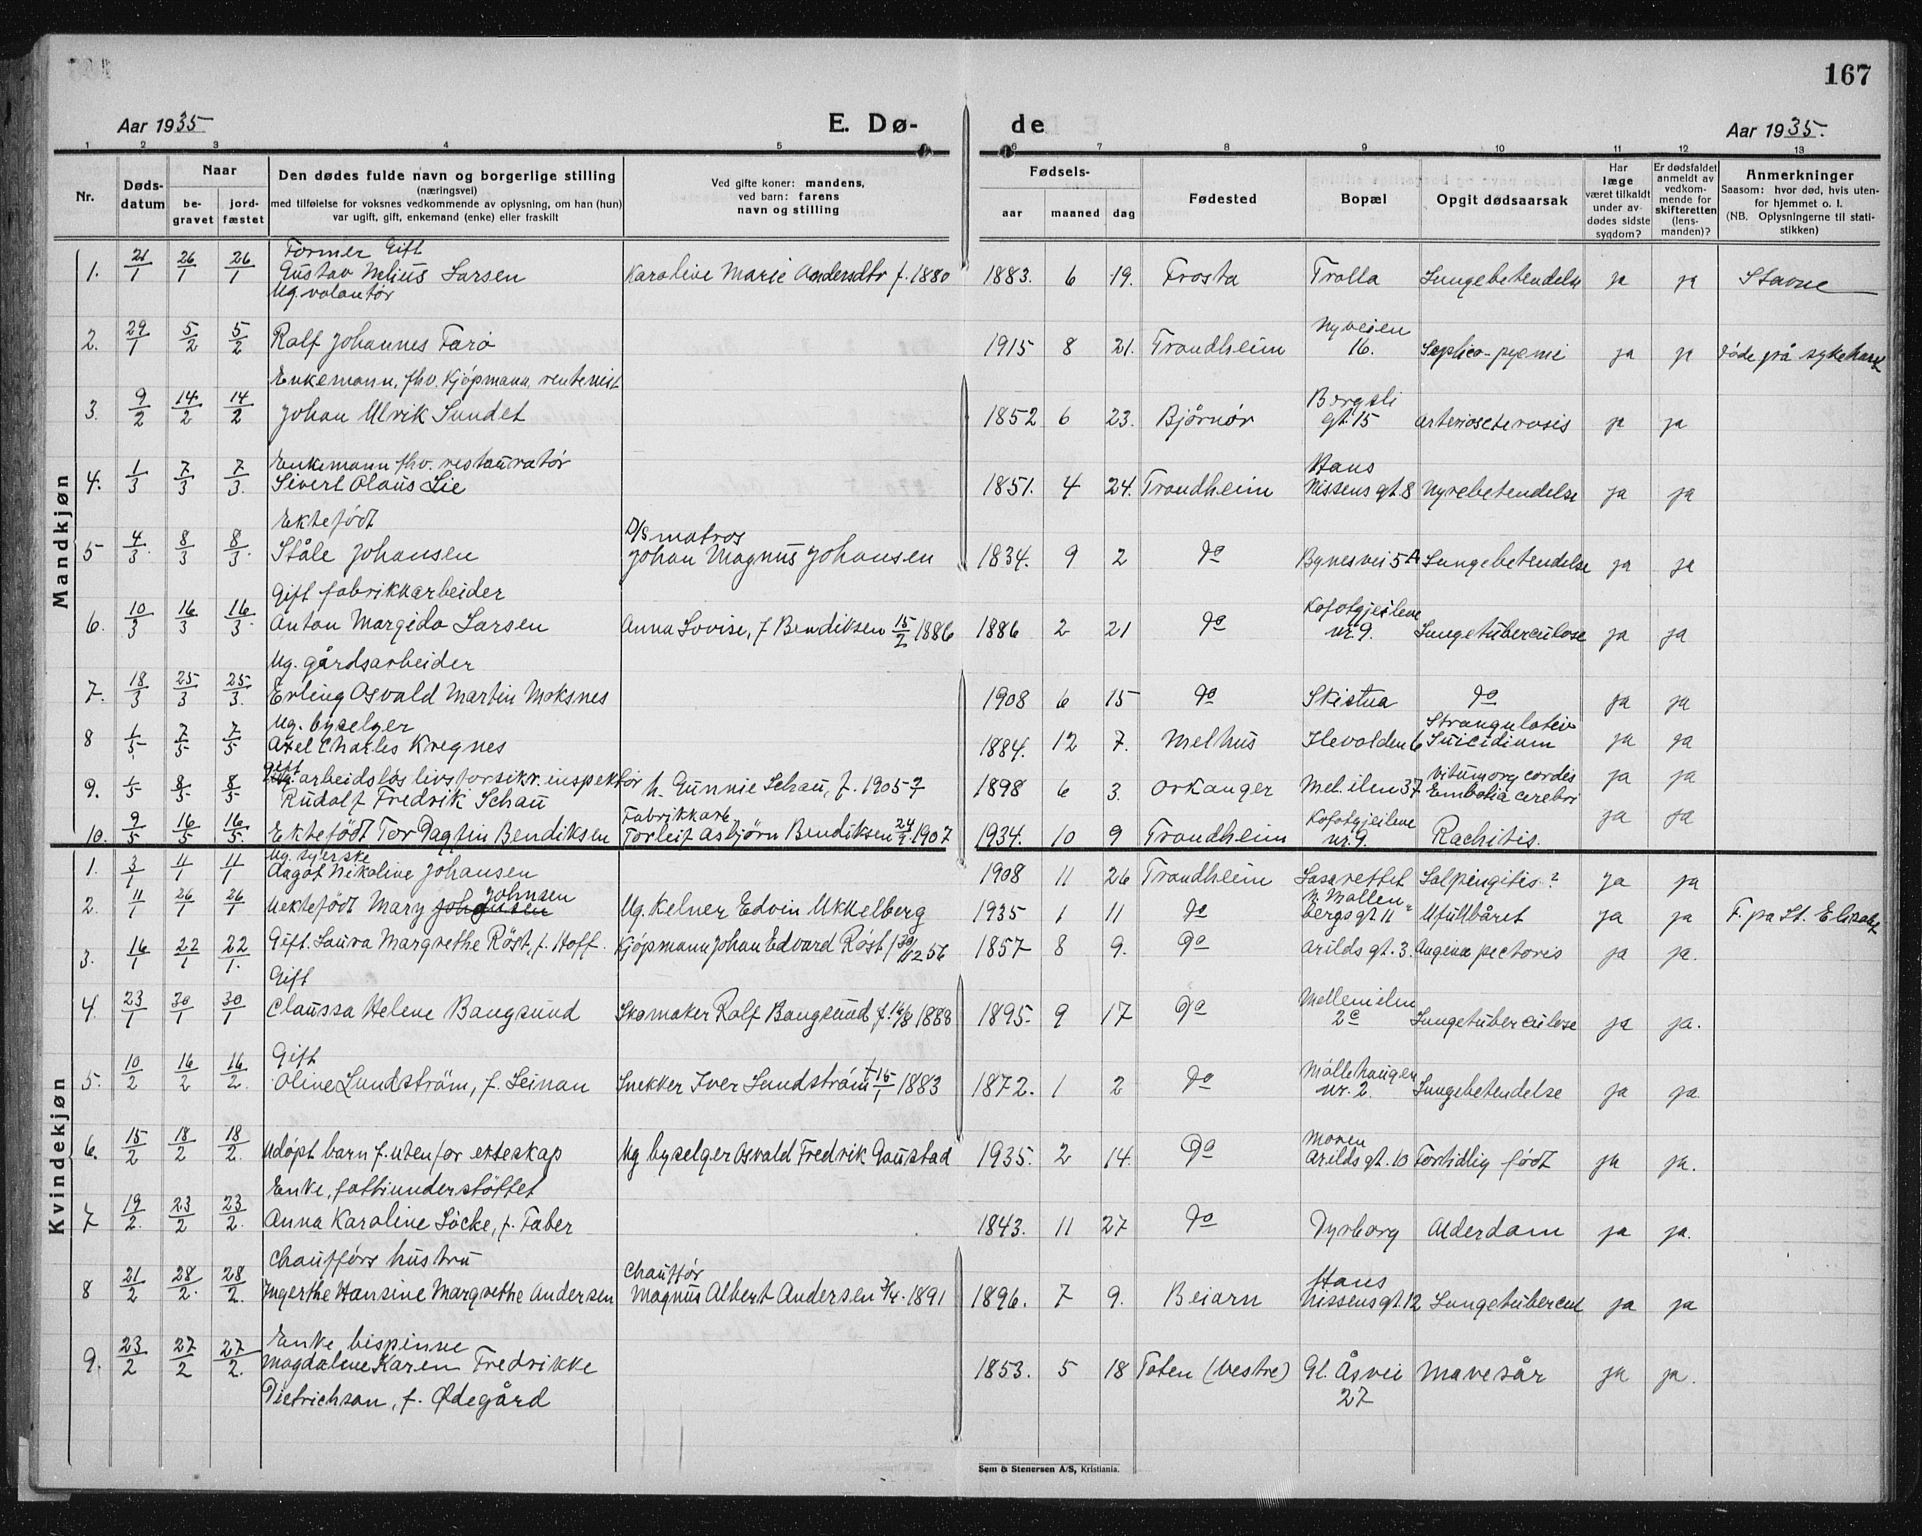 167
Aar 1935
E. Dø-
de
Aar 1935.
1 2 3 4 5 6 7 8 9 10 11 12 13
Nr.
Døds-
datum
Naar
be-
gravet
jord-
fæstet
Den dødes fulde navn og borgerlige stilling
(næringsvei)
med tilføielse for voksnes vedkommende av oplysning, om han (hun)
var ugift, gift, enkemand (enke) eller fraskilt
Ved gifte koner: mandens,
ved barn: farens
navn og stilling
Fødsels-
aar maaned dag
Fødested
Bopæl
Opgit dødsaarsak
Har
læge
været tilkaldt
under av-
dødes sidste
sygdom?
Er dødsfaldet
anmeldt av
vedkom-
mende for
skifteretten
(lens-
manden)?
Anmerkninger
Saasom: hvor død, hvis uten-
for hjemmet o. l.
(NB. Oplysningerne til stati-
stikken)
Mandkjøn
Former Gift
1. 21/1 26/1 26/1 Gustav Melius Larsen Karoline Marie Andersdtr f. 1880 1883. 6 19. Frosta Trolla Lungebetendelse ja ja Stavne
Ug. volontør
Nyveien
2. 29/1 5/2 5/2 Ralf Johannes Farø 1915 8 21. Trondheim 16. Septico-pyemi ja ja Døde på sykehuset
Enkemann, fhv. Kjøpmann, rentenist
Bergsli
3. 9/2 14/2 14/2 Johan Ulrik Sundet 1852 6 23. Bjørnør gt. 15 arteriosclerosis ja ja
Enkemann fhv. restauratør
Hans
4. 1/3 7/3 7/3. Sivert Olaus Lie 1851. 4 24. Trondheim Nissens gt. 8 Nyrebetendelse ja ja
Ektefødt
D/S matros
5 4/3. 8/3 8/3. Ståle Johansen Johan Magnus Johansen 1834. 9 2 do Bynesvei 5A Lungebetendelse ja ja
Gift fabrikkarbeider
Kofotgjeilene
6. 10/3 16/3 16/3. Anton Margido Larsen Anna Lovise, f Bendiksen 15/2 1886 1886 2 21 do nr. 9. Lungetuberculose ja ja
Ug. gårdsarbeider
7. 18/3 25/3 25/3. Erling Osvald Martin Moksnes 1908 6 15 do Skistua do ja ja
Ug. byselger
Strangulatio
8 1/5. 7/5 7/5 Axel Charles Kregnes 1884. 12 7. Melhus Ilevolden 6 Suicidium ja ja
Gift arbeidsløs livsforsikr. inspektør
Vitium org cordis
9. 1/5 8/5 8/5 Rudolf Fredrik Schau h. Gunnie Schau, f. 1905 1898 6 3. Orkanger Mel. ilen 37 Embolia cerebri ja ja
Fabrikkarb
Kofotgjeilene
10. 9/5 16/5 16/5. Ektefødt Tor Dagfin Bendiksen Torleif Asbjørn Bendiksen 1907 1934. 10 9 Trondheim nr. 9. Rachitis. ja ja
Kvindekjøn
Ug. syerske
1. 3/1 11/1 11/1 Dagot Nikoline Johansen 1908 11 26 Trondheim Lasarettet Salpingitis? ja ja
Johnsen
N. Møllen-
2. 11/1 26/1 26/1 Uektefødt Mary Johansen Ug. Kelner Edvin Ukkelberg 1935 1 11 do bergsgt 11 Ufullbåret ja ja F. på St. Elisabet
3. 16/1 22/1 22/1. Gift. Laura Margrethe Röst, f. Hoff. Kjøpmann Johan Edvard Röst 1857 8 9. do Arilds gt. 3. Angina pectoris ja ja.
Gift
Mellemilen
4. 23/1 30/1 30/1 Claussa Helene Bangsund Skomaker Rolf Bangsund f. 16/8 1888 1895. 9 17 do 2c Lungetuberculose ja ja.
Gift
Möllehaugen
5. 10/2 16/2 16/2. Oline Lundström, f. Leinan Snekker Iver Lundström 15/1 1883 1872. 1 2 do nr. 2. Lungebetendelse ja ja.
Moren
6. 15/2 18/2 18/2. Udöpt barn f. utenfor ekteskap Ug byselger Osvald Fredrik Gaustad 1935. 2 14. do Arilds gt. 10 Fortidlig født ja ja.
Enke, fattiunderstöttet
7 19/2. 23/2 23/2. Anna Karoline Löcke, f. Faber 1843. 11 27 do Dyrborg Alderdom ja ja.
Chaufförs hustru
Chauffør
Hans
8 21/2 28/2. 28/2. Ingerthe Hansine Margrethe Andersen Magnus Albert Andersen 3/4. 1891 1896. 7 9. Beiarn Nissensgt. 12 Lungetubercul ja ja
Enke, bispinne
9. 23/2 27/2 27/2. Magdalene Karen Fredrikke 1853. 5 18 Toten (Vestre) Gl. Åsvei Mavesår ja ja.
Dietrichson, f. Ødegård 27
Sem & Stenersen A/S, Kristiania.